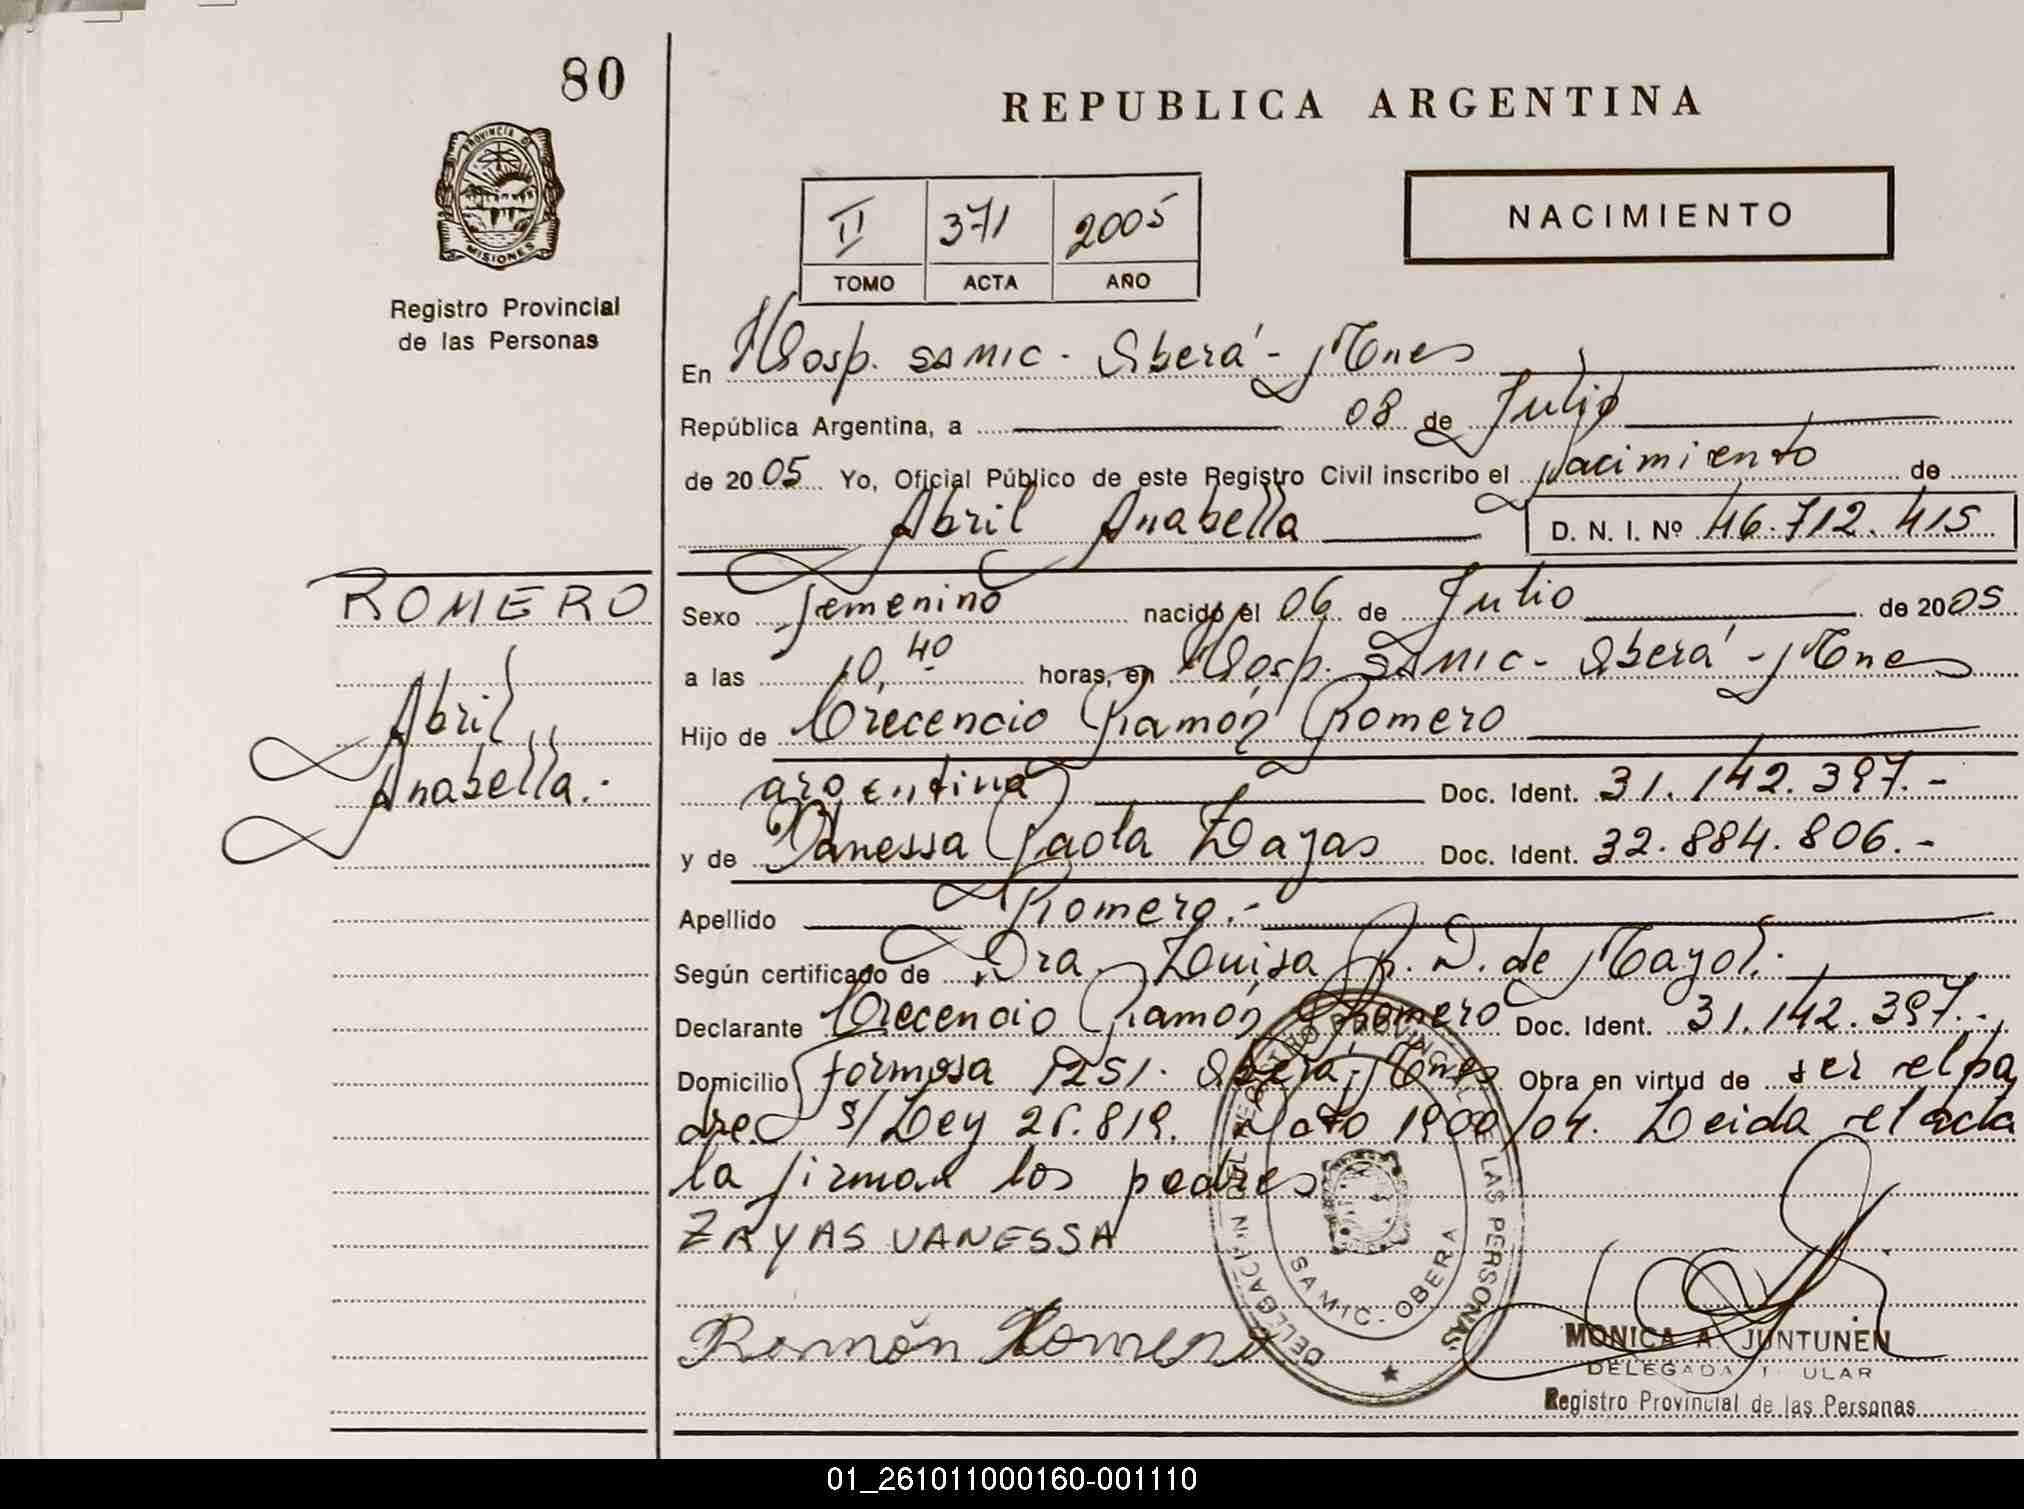 80
REPUBLICA ARGENTINA
PROVINCIA DE
MISIONES
Registro Provincial
de las Personas
II 371 2005
TOMO ACTA AÑO
NACIMIENTO
En Hosp. SAMIC - Oberá - Mnes
República Argentina, a 08 de Julio
de 2005 Yo, Oficial Público de este Registro Civil inscribo el Nacimiento de
Abril Anabella D. N. I. Nº 46.712.415
ROMERO
Abril
Anabella.-
Sexo femenino nacido el 06 de Julio de 2005
a las 10,40 horas, en Hosp. SAMIC - Oberá - Mnes
Hijo de Crecencio Ramón Romero
argentina Doc. Ident. 31.142.397.-
y de Vanessa Paola Zayas Doc. Ident. 32.884.806.-
Apellido Romero.-
Según certificado de Dra. Luisa R. D. de Mayol.-
Declarante Crecencio Ramón Romero Doc. Ident. 31.142.397.-
Domicilio formosa 1251. Oberá, Mnes Obra en virtud de ser el pa
dre s/Ley 26.819. Dto 1900/04. Leida el acta
la firman los padres
ZAYAS VANESSA
Ramón Romero
DELEGACION DEL REGISTRO PROVINCIAL DE LAS PERSONAS
SAMIC - OBERA
MONICA A. JUNTUNEN
DELEGADA TITULAR
Registro Provincial de las Personas
01_261011000160-001110